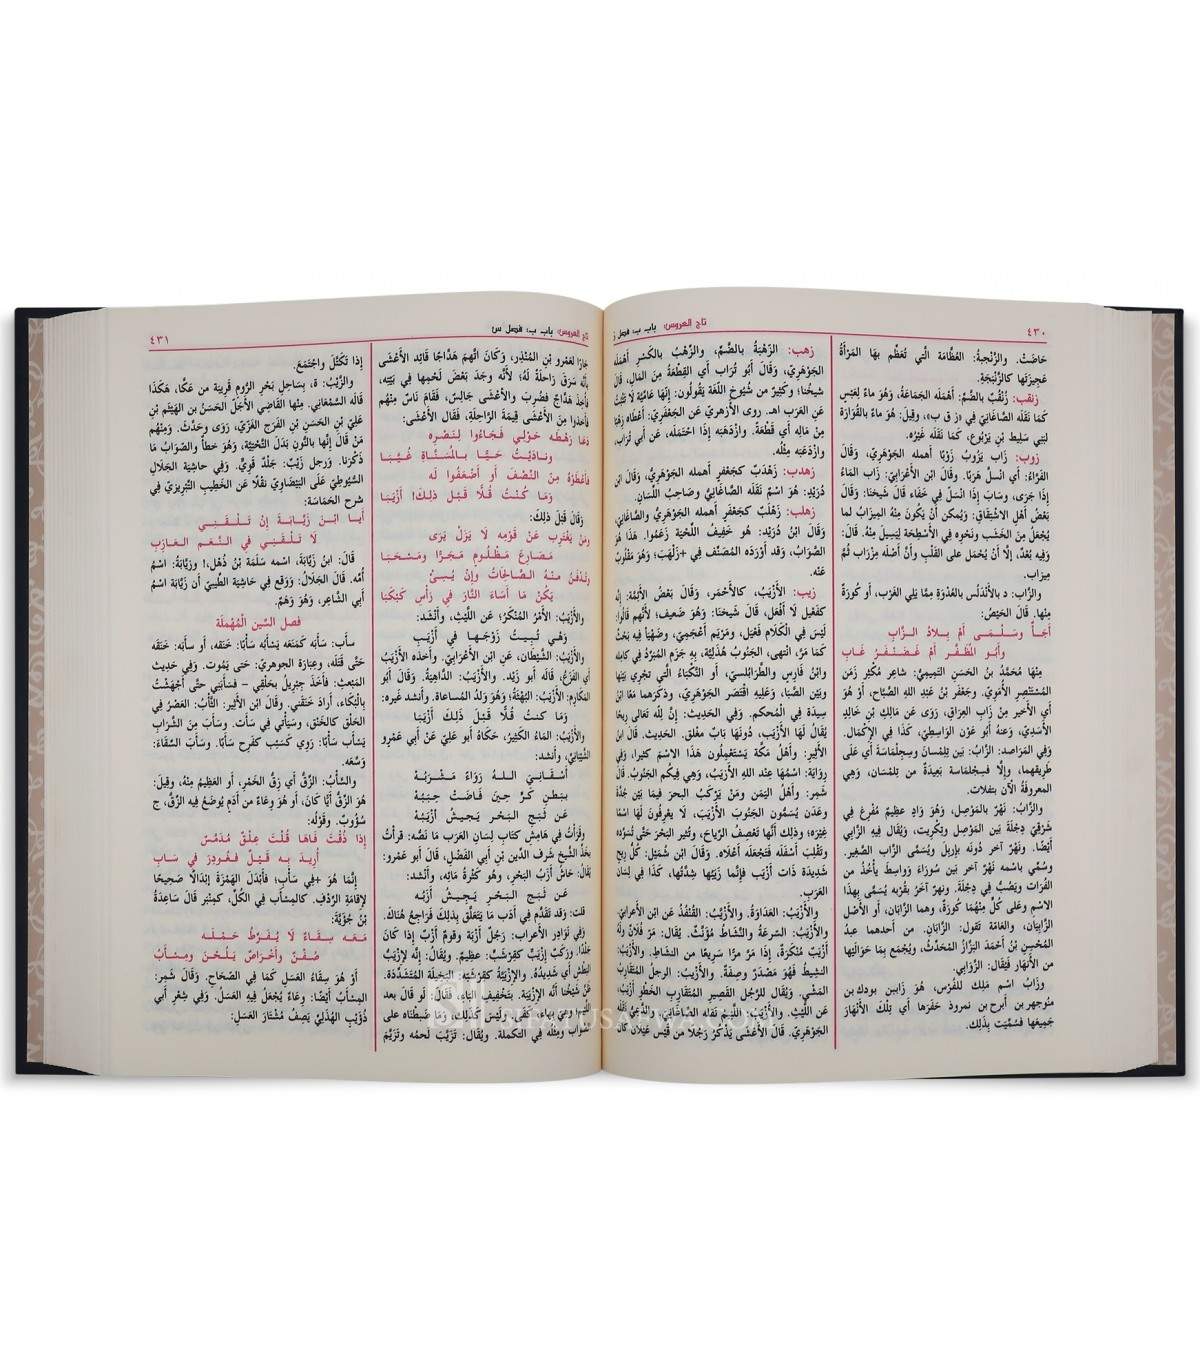 ٤٣٠
تاج العروس: باب ب: فصل ز
حَاضَتْ. والزُّنْجبةُ: العَظَّامَة الَّتي تُعَظِّم بهَا المَرْأَةُ
عَجِيزَتَها كالزُّنْبُجَةِ.
زنقب: زُنْقُبٌ بالضَّمِّ: أَهْمَلَه الجَمَاعَةُ، وَهُوَ مَاءٌ لِعَبْسٍ
كَمَا نَقَلَه الصَّاغَانِيّ فِي «ز ق ب»، وقِيلَ: هُوَ مَاءٌ بالقُوَارَة
لِبَنِي سَلِيطِ بْنِ يَرْبُوع، كَمَا نَقَلَه غَيْرُه.
زوب: زَابَ يَزُوبُ زَوْبًا أهمله الجَوْهَرِيّ، وَقَالَ
الفَرَّاءُ: أَي انْسلَّ هَرَبًا. وَقَالَ ابْنُ الأَعْرَابِيِّ: زَابَ المَاءُ
إِذَا جَرَى، وسَابَ إِذَا انْسَلَّ فِي خَفَاء قَالَ شَيخُنا: وَقَالَ
بَعْضُ أَهْلِ الاشْتِقَاقِ: ويُمكن أَنْ يَكُونَ مِنْهُ المِيزَابُ لما
يُجْعَلُ مِنَ الخَشَب ونَحْوِه فِي الأَسْطِحَة لِيَسِيلَ مِنْهُ. قَالَ:
وَفِيه بُعْدٌ، إِلَّا أَنْ يُحْمَل عَلى القَلْبِ وأَنَّ أَصْلَه مِزْرَاب ثُمَّ
مِيزَاب.
والزَّاب: د بالأَنْدَلُس بالعُدْوَة مِمَّا يَلِي الغَرْب، أَو كُورَةٌ
مِنْها. قَالَ الحَيْصُ:
أَجَأْ وسَلْمَى أَمْ بِلادُ الزَّاب
وأَبُو المُظَفَّر أَمْ غَضَنْفَرُ غَاب
مِنْهَا مُحَمَّدُ بْنُ الحَسَنِ التَّمِيمِيُّ: شاعِر مُكْثِر زَمَنَ
المُسْتَنْصِرِ الأُمَوِيِّ. وجَعْفَر بْنُ عَبْدِ اللهِ الصَّبَّاح، أَوْ هُوَ
أَي الأَخير مِنْ زَابِ العِرَاقِ، رَوَى عَن مَالِكِ بْنِ خَالِدٍ
الأَسَدِيّ، وَعَنهُ أَبو عَوْن الوَاسِطِيّ، كَذَا فِي الإِكْمَال.
وَفِي المَرَاصد: الزَّابُ: بَيْن تِلِمْسَان وسِجِلْمَاسَة أَي عَلَى
طَرِيقهما، وإِلَّا فسِجْلمَاسة بَعِيدَة من تِلِمْسَان، وَهِي
المعروفَةُ الآن بتَفلات.
والزَّابُ: نَهْرٌ بالمَوْصِل، وَهُوَ وَادٍ عظِيمٌ مُفْرغ فِي
شَرْقِيّ دِجْلَةَ بَيْنَ المَوْصِلِ وتِكْرِيت، ويُقَال فِيهِ الزَّابِي
أَيْضًا. ونَهْرٌ آخر دُونَه بإِربِلَ ويُسَمَّى الزَّاب الصَّغِير.
وسُمِّي باسْمِه نَهْرٌ آخر بَيْن سُورَاءَ وَوَاسِطَ يأْخُذ من
الفُرَات ويَصُبّ فِي دِجْلَةَ. ونهرٌ آخَرُ بقُرْبِه يُسَمَّى بِهَذَا
الاسْم وعَلى كُلٍّ مِنْهُمَا كُورَةٌ، وهما الزَّابَان، أَو الأَصْل
الزَّابِيَان، والعَامَّة تَقول: الزَّابَانِ. من أَحدهمَا عبدُ
المُحْسِن بْنِ أَحْمَد البَزَّارُ المُحَدِّث، ويُجْمَع بِمَا حَوالَيْها
من الأَنْهَارِ فَيُقَال: الزَّوَابي.
وزَابُ اسْم مَلِك للفُرْس، هُوَ زَابَين بودك بن
منوجهر بن أبرح بن نمرود حَفَرَها أَي تِلْكَ الأَنْهَارَ
جَمِيعَها فسُمِّيَت بِذَلِك.
زهب: الزُّهْبَةُ بالضَّمّ، والزِّهْبُ بالكَسْرِ أَهْمَلَهُ
الجَوْهَرِيّ، وَقَالَ أَبُو تُرَاب أَي القِطْعَةُ مِنَ المَالِ، قَالَ
شيخُنا: وكَثِيرٌ من شُيوخ اللُّغَة يَقُولُون: إِنَّهَا عَامِّيَّة لَا تَثْبُت
عَنِ العَرَبِ اهـ. روى الأَزهريّ عَن الجَعْفَرِيّ: أَعْطَاه زِهْبًا
مِنْ مَالِهِ أَي قِطْعَةً. وازْدَهَبَه إِذَا احْتَمَلَه، عَن أَبي تُرَاب،
وازْدَعَبَه مِثْلُه.
زهدب: زَهْدَبٌ كَجَعْفَرٍ أَهمله الجَوْهَرِيُّ، وَقَالَ ابْن
دُرَيْدٍ: هُوَ اسْم نَقَلَه الصَّاغَانِيُّ وصَاحِبُ اللِّسَان.
زهلب: زَهْلَبٌ كجَعْفَرٍ أهمله الجَوْهَرِيُّ والصَّاغَانِيُّ
وَقَالَ ابْنُ دُرَيْد: هُوَ خَفِيفُ اللِّحْيَة زَعَمُوا. هَذَا هُوَ
الصَّوَابُ، وَقَد أَوْرَدَه المُصَنِّف فِي «زَلْهَبَ»؛ وَهُوَ مَقْلُوبٌ
عَنْه.
زيب: الأَزْيَبُ، كالأَحْمَرِ، وَقَالَ بَعْضُ الأَئِمَّة: إِنَّه
كفَعْيَل لَا أَفْعَل، قَالَ شَيخُنَا: وَهُوَ ضَعِيفٌ؛ لأَنَّهُم قَالُوا:
لَيْسَ فِي الْكَلَام فَعْيَل، ومَرْيَم أَعْجَمِيّ، وضَهْيَأ فِيهِ بَحْثٌ
كَمَا مَرَّ، انْتهى، الجَنُوبُ هُذَلِيَّة، بِهِ جَزَم المُبَرِّدُ فِي كامِلِه
وابْنُ فَارِس والطَّرَابُلسِيّ، أَو النَّكْبَاءُ الَّتِي تَجْرِي بَيْنَها
وبَيْن الصَّبَا، وعَلَيْهِ اقْتَصَر الجَوْهَرِيّ، وذكرَهُما مَعًا ابْنُ
سِيدَه فِي المُحكم. وَفِي الحَدِيث: إِنَّ لِلَّه تَعَالَى رِيحًا
يُقَالُ لَهَا الأَزْيَب، دُونَهَا بَابٌ مُغْلَق. الحَدِيث. قَالَ ابْنُ
الأَثِيرِ: وأَهْلُ مَكَّة يَسْتَعْمِلُون هَذَا الاسْمَ كثيرا، وَفِي
رِوَايَة: اسْمُهَا عِنْدَ اللهِ الأَزْيَب، وَهِي فِيكُم الجَنُوبُ. قَالَ
شَمِر: وأَهْلُ اليَمَن ومَنْ يَرْكَبُ البَحرَ فِيمَا بَيْنَ جُدَّةَ
وعَدَن يُسَمُّونَ الجَنُوبَ الأَزْيَبَ، لَا يَعْرِفُونَ لَهَا اسْمًا
غَيْرَه؛ وذلِكَ أَنَّها تَعْصِف الرِّيَاحَ، وتُثِير البَحْرَ حَتَّى تُسَوِّدَه
وتَقْلِبَ أَسْفَلَه فَتَجْعَلَه أَعْلاه. وَقَالَ ابْن شُمَيْل: كُلُّ رِيحٍ
شَدِيدَة ذَات أَزْيَب فَإِنَّمَا زَيَبُها شِدَّتُها، كَذَا فِي لِسَان
العَرَب.
والأَزْيَبُ: العَدَاوَةُ. والأَزْيَبُ: القُنْفُذُ عَن ابْنِ الأَعرابيّ.
والأَزْيَبُ: السُّرعَة والنَّشَاطُ مُؤَنَّثٌ. يُقَال: مَرَّ فُلَانٌ ولَهُ
أَزْيَبٌ مُنْكَرَةٌ، إِذَا مَرَّ مَرًّا سَرِيعًا من النشاط. والأَزْيَب:
النشِيط فَهُوَ مَصْدَرٌ وصِفَةٌ. والأَزْيَبُ: الرجلُ المُتَقَارِبُ
المَشْي. ويُقَال لِلرَّجُل القَصِير المُتَقَارِب الخَطْوِ أَزْيَب،
عَن اللَّيْثِ. والأَزْيَبُ: اللَّئِيم نَقله الصَّاغَانِيّ. والدَّعِيُّ نَقله
الجَوْهَرِيّ. قَالَ الأَعْشَى يَذْكُرُ رَجُلًا من قَيْس عَيْلَان كَانَ
تاج العروس: باب ب: فصل س
٤٣١
جَارًا لعَمْرو بْنِ المُنْذِر، وَكَانَ اتَّهمَ هَدَّاجًا قَائِد الأَعْشَى
بأَنَّه سَرَقَ رَاحِلَةً لَهُ؛ لأَنَّه وَجَدَ بَعْضَ لَحْمِها فِي بَيْتِه،
فأُخِذَ هَدَّاجٌ فضُرِبَ والأَعْشَى جَالِسٌ، فَقَامَ نَاسٌ مِنْهُم
فأَخَذُوا مِن الأَعْشَى قِيمَةَ الرَّاحِلَة، فَقَالَ الأَعْشَى:
دَعَا رَهْطَه حَوْلِي فَجَاءُوا لِنَصْرِه
ونَادَيْتُ حَيًّا بالمُسَنَّاةِ غُيَّبَا
فأَعْطَوْهُ مِنِّي النِّصْفَ أَو أَضْعَفُوا لَه
ومَا كُنْتُ قُلًّا قَبْلَ ذلِكَ! أَزْيَبَا
وَقَالَ قَبْلَ ذلِكَ:
ومَنْ يَغْتَرِبْ عَنْ قَوْمِه لَا يَزَلْ يَرَى
مَصَارِعَ مَظْلُومٍ مَجَرًّا ومَسْحَبَا
وتُدْفَنُ مِنْهُ الصَّالِحَاتُ وإِنْ يُسِئْ
يَكُنْ مَا أَسَاءَ النَّارَ فِي رَأْسِ كَبْكَبَا
والأَزْيَبُ: الأَمْرُ المُنْكَرُ؛ عَن اللَّيْثِ، وأَنْشَد:
وَهْي تُبِيتُ زَوْجَهَا فِي أَزْيَبِ
والأَزْيَبُ: الشَّيْطَان، عَن ابْن الأَعْرَابِيِّ. وأَخذه الأَزْيَبُ
أَي الفَزَعُ، قَالَه أَبُو زَيْد. والأَزْيَبُ: الدَّاهِيَةُ. وَقَالَ أَبو
المَكَارِم: الأَزْيَبُ: البُهْثَة؛ وَهُوَ وَلَدُ المُسَاعاة، وأَنشد غَيره:
وَمَا كنتُ قُلًّا قَبْلَ ذَلِكَ أَزْيَبَا
والأَزْيَبُ: المَاءُ الكَثِيرُ، حَكَاهُ أَبو عَلِيّ عَنْ أَبِي عَمْرو
الشَّيْبَانِيّ، وأَنشد:
أَسْقَانِيَ اللهُ رَوَاءً مَشْرَبُهْ
بِبَطْنِ كَرٍّ حِينَ فَاضَتْ حِبَبُهْ
عَنْ ثَبَجِ البَحْرِ يَجِيشُ أَزْيَبُهْ
وقَرَأْتُ فِي هَامِش كتاب لِسَانِ العَرَب مَا نَصُّه: قرأتُ
بِخَطِّ الشَّيْخ شَرف الدِّين بْنِ أَبي الفَضْل، قَالَ أَبو عَمْرو:
يُقَال: جَاشَ أَزْبُ البَحْرِ، وَهُوَ كَثْرَةُ مَائِه، وأَنْشَد:
عَن ثَبَجِ البَحْرِ يَجِيشُ أَزْبُه
قلت: وَقَد تَقَدَّم فِي أَدَب مَا يَتَعَلَّق بِذلِك فَرَاجِعْ هُنَاك.
وَفِي نَوَادِر الأَعراب: رَجُلٌ أَزْبَة وقَومٌ أَزْبٌ إِذَا كَانَ
جَلْدًا. ورَكَبٌ إِزْيَبٌ كقِرْشَبّ: عَظِيمٌ. ويُقَال: إِنَّه لإِزْيَبُّ
البَطْشِ أَي شَدِيدُه. والإِزْيَبَّة كقِرْشَبّة: البَخِيلَة المُتَشَدِّدَة.
إِذا تَكَتَّل واجْتَمَعَ.
والزَّيْبُ: ة، بِسَاحِلِ بَحْرِ الرُّوم قَرِيبَة من عَكَّا، هَكَذَا
قَالَه السَّمْعَانِي. مِنْهَا القَاضِي الأَجَلُّ الحَسَنُ بن الهَيْثَم بْنِ
عَلِيّ بْنِ الحَسَنِ بْنِ الفَرَج الغَزّيّ، رَوَى وحَدَّثَ. ومِنْهُم
مَنْ قَالَ إِنَّهَا بالنُّونِ بَدَلَ التَّحْتِيَّة، وَهُوَ خَطَأٌ والصَّوَابُ مَا
ذَكَرْنَا. ورجل زَيْبٌ: جَلْدٌ قَوِيٌّ. وَفِي حاشِيَة الجَلَال
السُّيُوطِيّ عَلَى البَيْضَاوِيّ نَقْلًا عَنِ الخَطِيبِ التِّبْرِيزِي فِي
شرح الحَمَاسَة:
أَيا ابْنَ زَيَّابَةَ إِنْ تَلْقَنِي
لَا تَلْقَنِي فِي النَّعَمِ العَازِبِ
قَالَ: ابنُ زَيَّابَة، اسْمه سَلَمَة بْن ذُهْل،! وزيَّابَةُ: اسْمُ
أُمِّه. قَالَ الجَلَالُ: وَوَقع فِي حَاشِيَة الطِّيبِيّ أَن زَيَّابَة اسْم
أَبِي الشَّاعِر، وَهُوَ وَهَمٌ.
فصل السِّين المُهْمَلَة
سأب: سَأَبَه كمَنَعَه يَسْأَبه سَأْبًا: خَنَقه، أَو سأَبَه: خَنَقَه
حَتَّى قَتَلَه، وعِبَارَة الجوهريّ: حَتى يَمُوت. وَفِي حَدِيثِ
المَبْعَث: فأَخَذَ جِبْرِيلُ بحَلْقِي - فسَأَبَنِي حتَّى أَجْهَشْتُ
بالبُكَاء، أَرادَ خَنَقَنِي. وَقَالَ ابْن الأَثِير: السَّأْب: العَصْرُ فِي
الحَلْق كالخَنْق، وسَيَأْتي فِي سَأَت. وسَأَبَ مِنَ الشَّرابِ
يَسْأَب سَأْبًا: رَوِي كَسَئِب كفَرِحَ سَأَبًا. وسَأَبَ السِّقَاءَ:
وَسَّعَه.
والسَّأْب: الزِّقُّ أَي زِقُّ الخَمْر، أَو العَظِيمُ مِنْه، وَقِيل:
هُوَ الزِّقُّ أَيًّا كَانَ، أَو هُوَ وِعَاءٌ من أَدَمٍ يُوضَع فِيهِ الزِّقّ، ج
سُؤُوبٌ. وقَوْلُه:
إِذَا ذُقْتَ فَاهَا قُلْتَ عِلْقٌ مُدَمَّسٌ
أُرِيدَ بِه قَيْلٌ فَغُودِرَ فِي سَاب
إِنَّمَا هُوَ «فِي سَأْبٍ»؛ فأَبْدَلَ الهَمْزَة إِبْدَالًا صَحِيحًا
لإِقَامَةِ الرِّدْفِ. كالمِسْأَبِ فِي الكُلِّ، كمِنْبَر قَالَ سَاعِدَةُ
بْنُ جُؤَيَّة:
مَعَه سِقَاءٌ لَا يُفَرِّطُ حَمْلَه
صُفْنٌ وأَخْرَاصٌ يَلُحْنَ ومِسْأَبُ
أَوْ هُوَ سِقَاءُ العَسَلِ كَمَا فِي الصِّحَاحِ. وَقَالَ شَمِرٌ:
المِسْأَبُ أَيْضًا: وِعَاءٌ يُجْعَلُ فِيهِ العَسَلُ. وَفِي شِعْرِ أَبِي
ذُؤَيْبٍ الهُذَلِيِّ يَصِفُ مُشْتَارَ العَسَلِ: